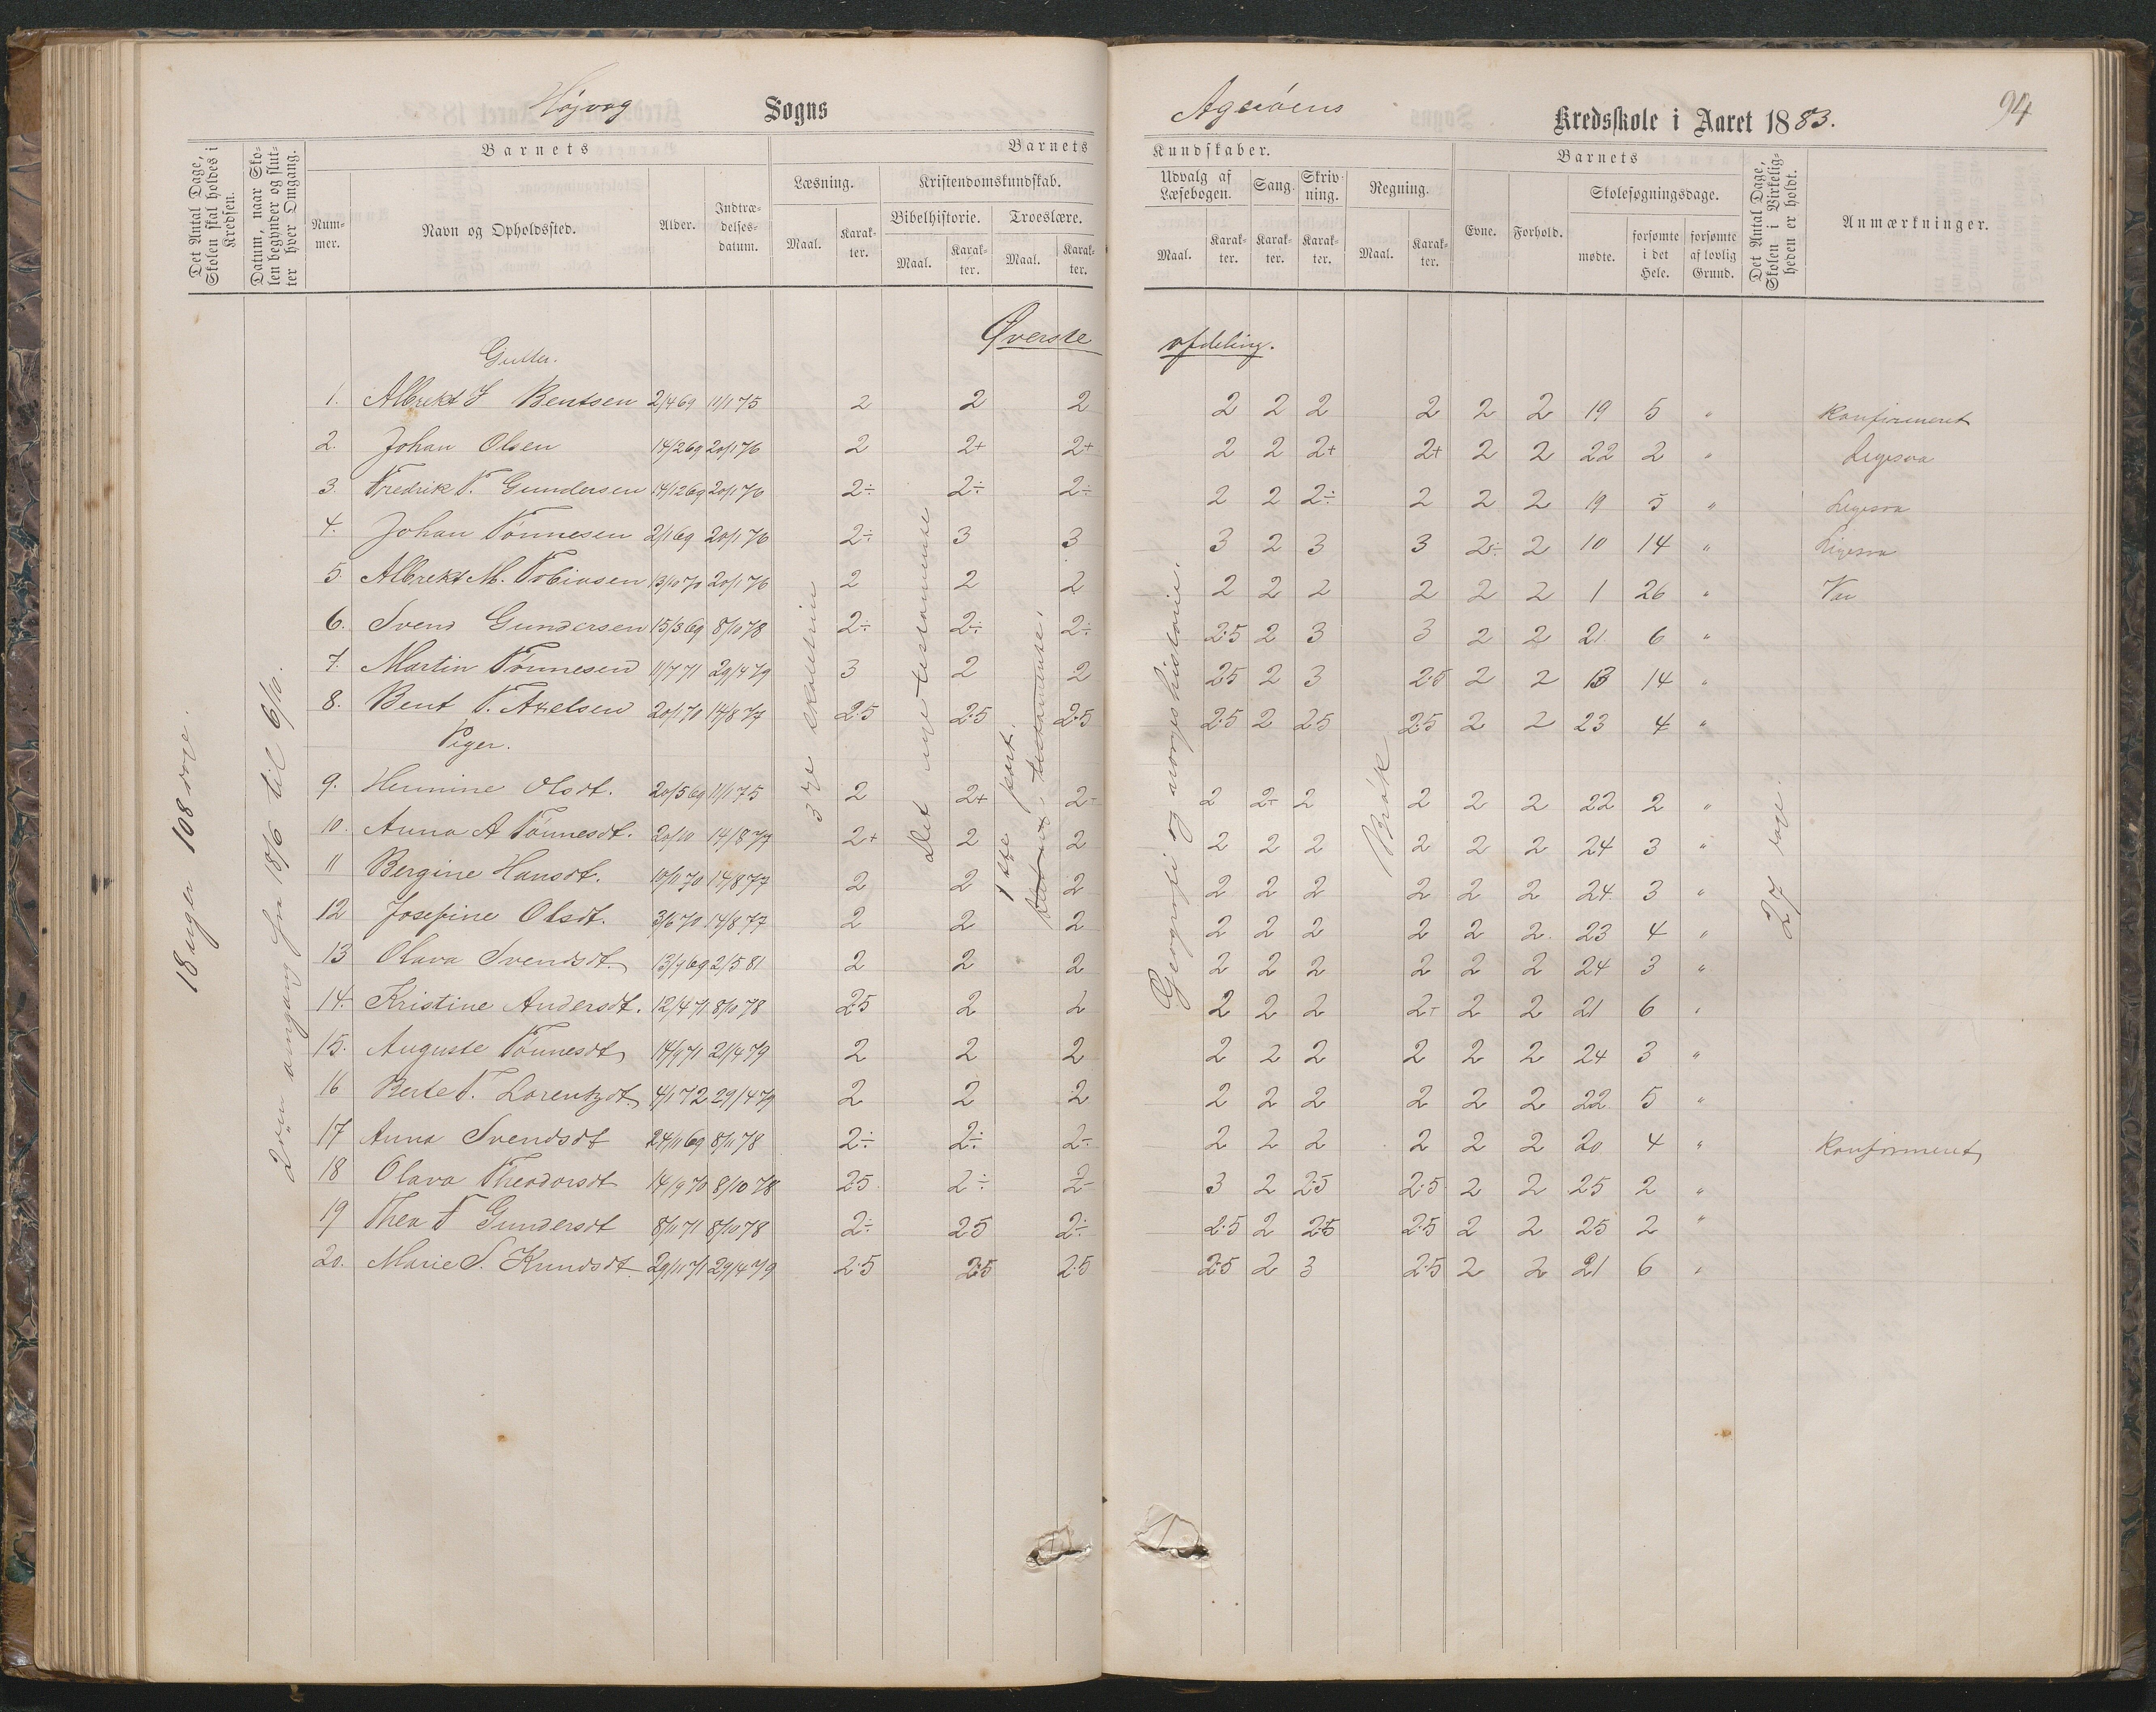 Højvog Sogns
Agerøens Kredsskole i Aaret 1883.
94
Det Antal Dage, Skolen skal holdes i Kredsen.
Datum, naar Skolen begynder og slutter hver Omgang.
Barnets
Nummer.
Navn og Opholdssted.
Alder.
Indtrædelsesdatum.
Barnets
Læsning.
Maal.
Karakter.
Kristendomskundskab.
Bibelhistorie.
Maal.
Karakter.
Troeslære.
Maal.
Karakter.
Kundskaber.
Udvalg af Læsebogen.
Maal.
Karakter.
Sang.
Karakter.
Skrivning.
Karakter.
Regning.
Maal.
Karakter.
Barnets
Evne.
Forhold.
Skolesøgningsdage.
mødte.
forsømte i det Hele.
forsømte af lovlig Grund.
Det Antal Dage, Skolen i Virkeligheden er holdt.
Anmærkninger.
Øverste afdeling.
18 uger 108 dage.
2den omgang fra 18/6 til 6/10.
3die skoletrin
Det nye testamente
1ste part.
Geografi og norges historie.
Brøk
27 dage.
Gutter.
1. Albrekt J Bentsen 2/4 69 11/1 75 2 2 2 2 2 2 2 2 2 19 5 " Konfirmeret
2. Johan Olsen 14/2 69 20/1 76 2 2+ 2+ 2 2 2+ 2+ 2 2 22 2 " Ligesaa
3. Fredrik T. Gundersen 14/12 69 20/1 76 2÷ 2÷ 2÷ 2 2 2÷ 2 2 2 19 5 " Ligesaa
4. Johan Tønnesen 2/1 69 20/1 76 2÷ 3 3 3 2 3 3 2÷ 2 10 14 " Ligesaa
5. Albrekt M. Tobiasen 13/10 70 20/1 76 2 2 2 2 2 2 2 2 2 1 26 "
6. Svend Gundersen 15/3 69 8/10 78 2÷ 2÷ 2÷ 2.5 2 3 3 2 2 21 6 "
7. Martin Tønnesen 11/7 71 29/4 79 3 2 2 2.5 2 3 2.5 2 2 13 14 "
8. Bent T. Axelsen 20/1 70 14/8 77 2.5 2.5 2.5 2.5 2 2.5 2.5 2 2 23 4 "
Piger.
9. Hemine Olsdt. 20/5 69 11/1 75 2 2+ 2÷ 2 2÷ 2 2 2 2 22 2 "
10. Anna A Tønnesdt. 20/10 14/8 77 2+ 2 2 2 2 2 2 2 2 24 3 "
11 Bergine Hansdt. 10/11 70 14/8 77 2 2 2 2 2 2 2 2 2 24 3 "
12 Josefine Olsdt. 3/6 70 14/8 77 2 2 2 2 2 2 2 2 2 23 4 "
13 Olava Svendsdt. 13/9 69 2/5 81 2 2 2 2 2 2 2 2 2 24 3 "
14. Kristine Andersdt. 12/4 71 8/10 78 2.5 2 2 2 2 2 2÷ 2 2 21 6 "
15. Auguste Tønnesdt 14/9 71 21/4 79 2 2 2 2 2 2 2 2 2 24 3 "
16 Berte T. Lorentzdt. 4/1 72 29/4 79 2 2 2 2 2 2 2 2 2 22 5 "
17 Anna Svendsdt 24/11 69 8/11 78 2÷ 2÷ 2÷ 2 2 2 2 2 2 20 4 " Konfirmeret
18 Olava Theodorsdt 14/9 70 8/10 78 2.5 2÷ 2÷ 3 2 2.5 2.5 2 2 25 2 "
19 Thea T Gundersdt 8/11 71 8/10 78 2÷ 2.5 2÷ 2.5 2 2.5 2.5 2 2 25 2 "
20. Marie S. Knudsdt. 29/11 71 29/4 79 2.5 2.5 2.5 2.5 2 3 2.5 2 2 21 6 "